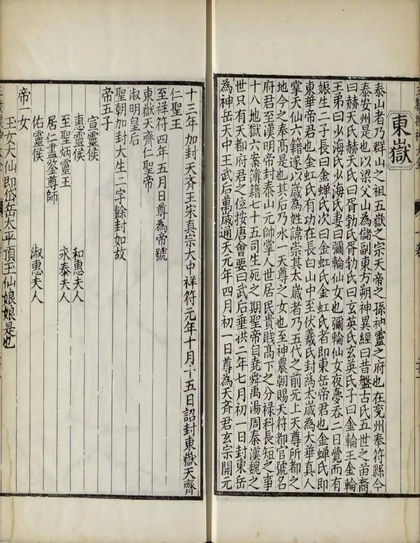 東嶽
泰山者乃群山之祖五嶽之宗天帝之孫神靈之府也在兖州奉符縣今
泰安州是也以梁父山為儲副東方朔神異經曰昔盤古氏五世之苗裔
曰赫天氏赫天氏曰胥勃氏胥勃氏曰玄英氏玄英氏子曰金輪王金輪
王弟曰少海氏少海氏妻曰彌輪仙女也彌輪仙女夜夢吞二日覺而有
娠生二子長曰金蟬氏次曰金虹氏金虹氏者即東岳帝君也金蟬氏即
東華帝君也金虹氏有功在長白山中至伏羲氏封為太歲為大華真人
掌天仙六籍遂以歲為姓諱崇其太歲者乃五代之前元上天尊所都之
地今之奉高是也其后乃水一天尊之女也至神農朝賜天符都官號名
府君至漢明帝封泰山元帥掌人世居民貴賤高下之分祿科長短之事
十八地獄六案簿籍七十五司生死之期聖帝自堯舜禹湯周秦漢魏之
世只有天都府君之位按唐會要曰武后垂拱二年七月初一日封東岳
為神岳天中王武后萬歲通天元年四月初一日尊為天齊君玄宗開元
十三年加封天齊王宋真宗大中祥符元年十月十五日詔封東嶽天齊
仁聖王
至祥符四年五月日尊為帝號
東嶽天齊仁聖帝
淑明皇后
聖朝加封大生二字餘封如故
帝五子
宣靈侯
惠靈侯 和惠夫人
至聖炳靈王 永泰夫人
居仁盡鑒尊師
佑靈侯 淑惠夫人
帝一女
玉女大仙即岱岳太平頂玉仙娘娘是也